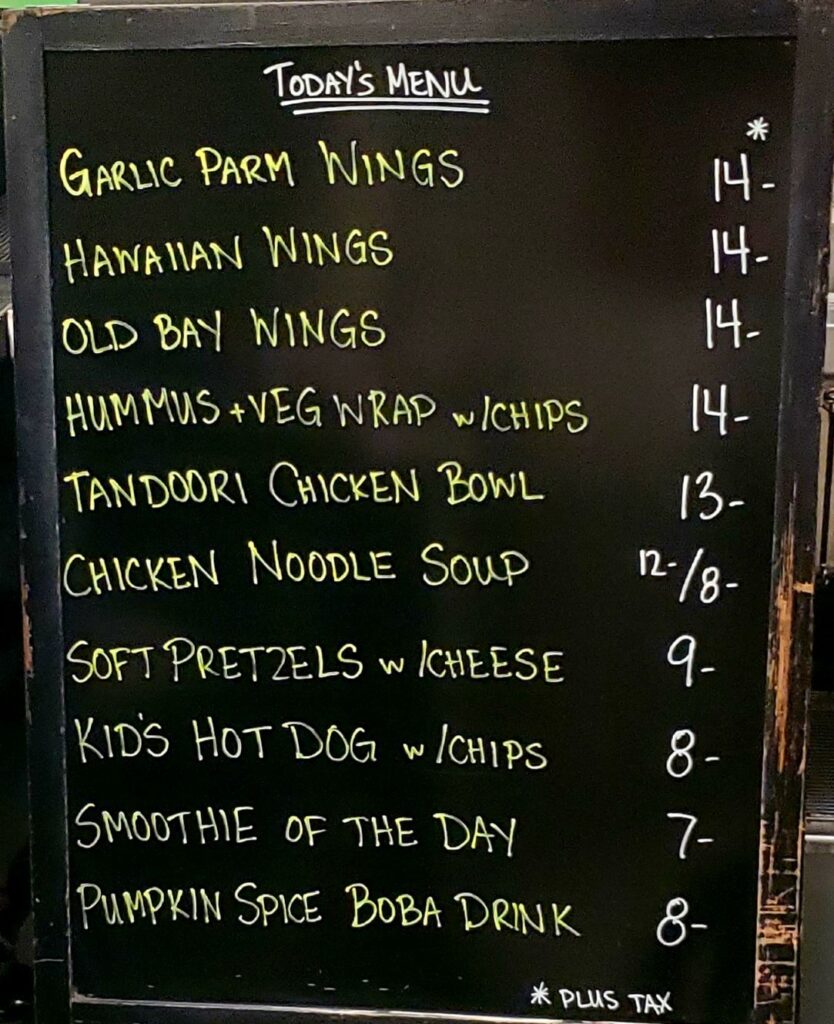 TODAY'S MENU
*
GARLIC PARM WINGS 14-
HAWAIIAN WINGS 14-
OLD BAY WINGS 14-
HUMMUS+VEG WRAP w/CHIPS 14-
TANDOORI CHICKEN BOWL 13-
CHICKEN NOODLE SOUP 12-/8-
SOFT PRETZELS w/CHEESE 9-
KID'S HOT DOG w/CHIPS 8-
SMOOTHIE OF THE DAY 7-
PUMPKIN SPICE BOBA DRINK 8-
* PLUS TAX